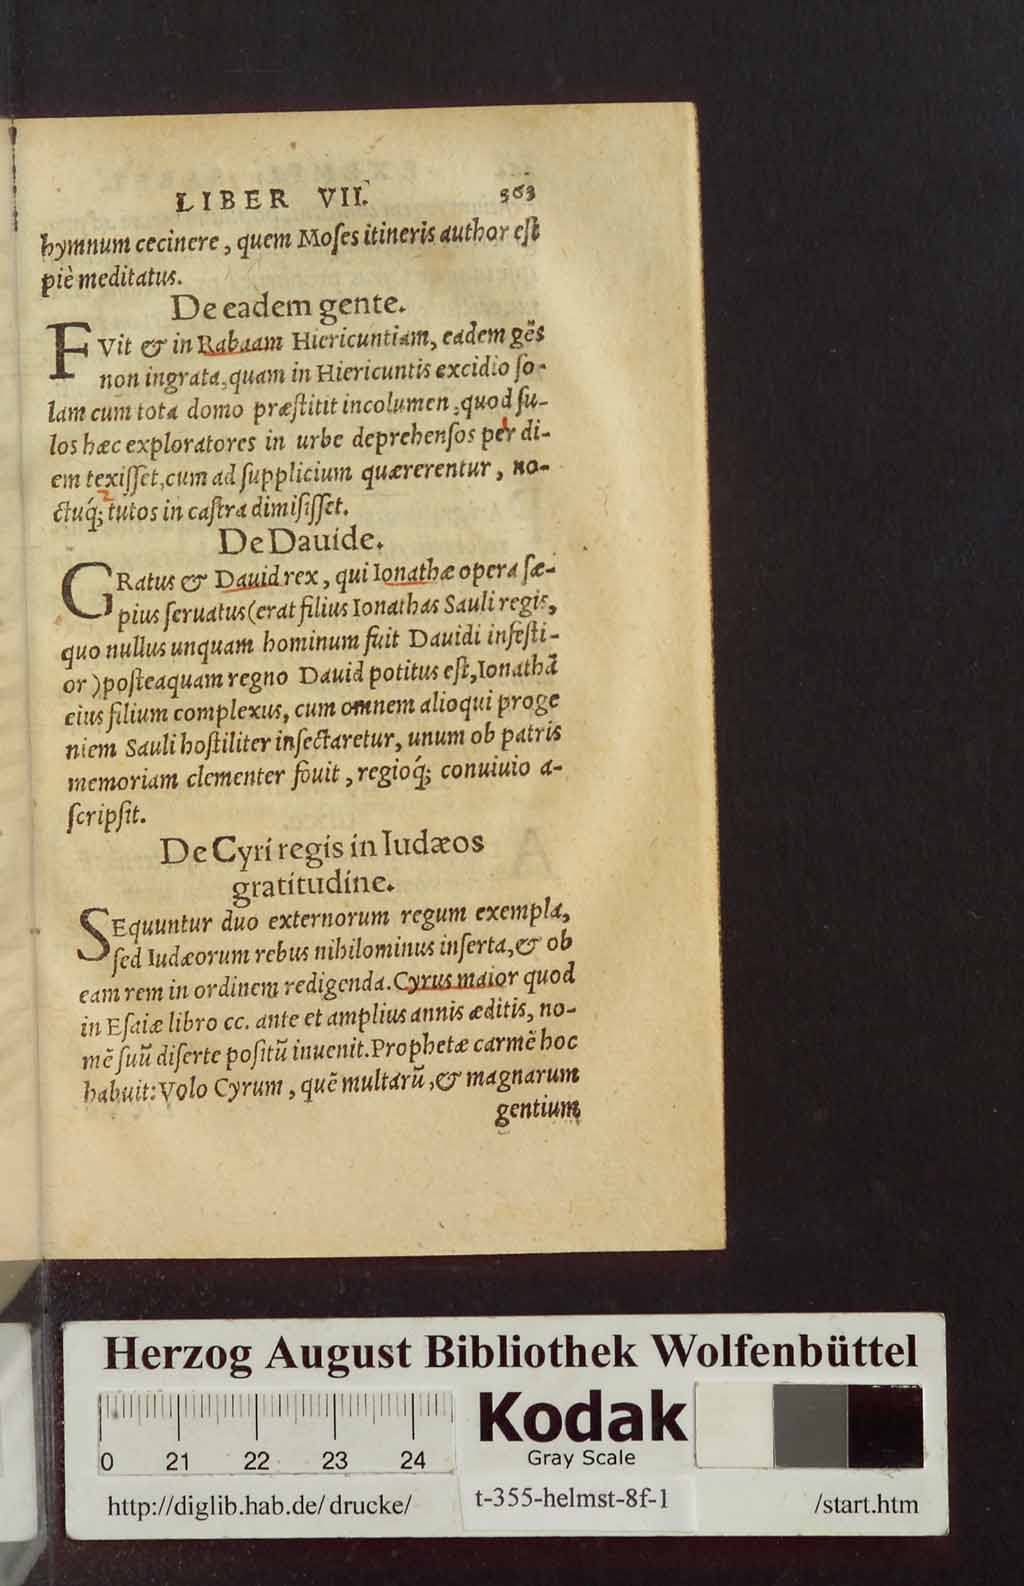 LIBER VII. 563
hymnum cecinere, quem Moſes itineris author eſt
piè meditatus.
De eadem gente.
FVit & in Rabaam Hiericuntiam, eadem gēs
non ingrata, quam in Hiericuntis excidio ſo-
lam cum tota domo præſtitit incolumen, quod ſu-
los hæc exploratores in urbe deprehenſos per di-
em texiſſet, cum ad ſupplicium quærerentur, no-
ctuq́; tutos in caſtra dimiſiſſet.
De Dauide.
GRatus & Dauid rex, qui Ionathæ opera ſæ-
pius ſeruatus (erat filius Ionathas Sauli regis,
quo nullus unquam hominum fuit Dauidi infeſti-
or) poſteaquam regno Dauid potitus eſt, Ionathā
eius filium complexus, cum omnem alioqui proge
niem Sauli hoſtiliter inſectaretur, unum ob patris
memoriam clementer fouit, regioq́; conuiuio a-
ſcripſit.
De Cyri regis in Iudæos
gratitudine.
SEquuntur duo externorum regum exempla,
ſed Iudæorum rebus nihilominus inſerta, & ob
eam rem in ordinem redigenda. Cyrus maior quod
in Eſaiæ libro cc. ante et amplius annis æditis, no-
mē ſuū diſerte poſitū inuenit. Prophetæ carmē hoc
habuit: Volo Cyrum, quē multarū, & magnarum
gentium
Herzog August Bibliothek Wolfenbüttel
0 21 22 23 24
Kodak
Gray Scale
http://diglib.hab.de/drucke/ t-355-helmst-8f-1 /start.htm